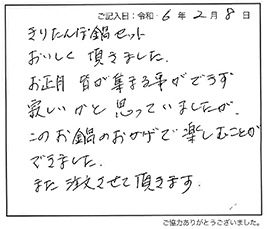 ご記入日：令和・6年2月8日
きりたんぽ鍋セット
おいしく頂きました.
お正月 皆が集まる事ができず
寂しいかと思っていましたが、
このお鍋のおかげで楽しむことが
できました.
また注文させて頂きます.
ご協力ありがとうございました。